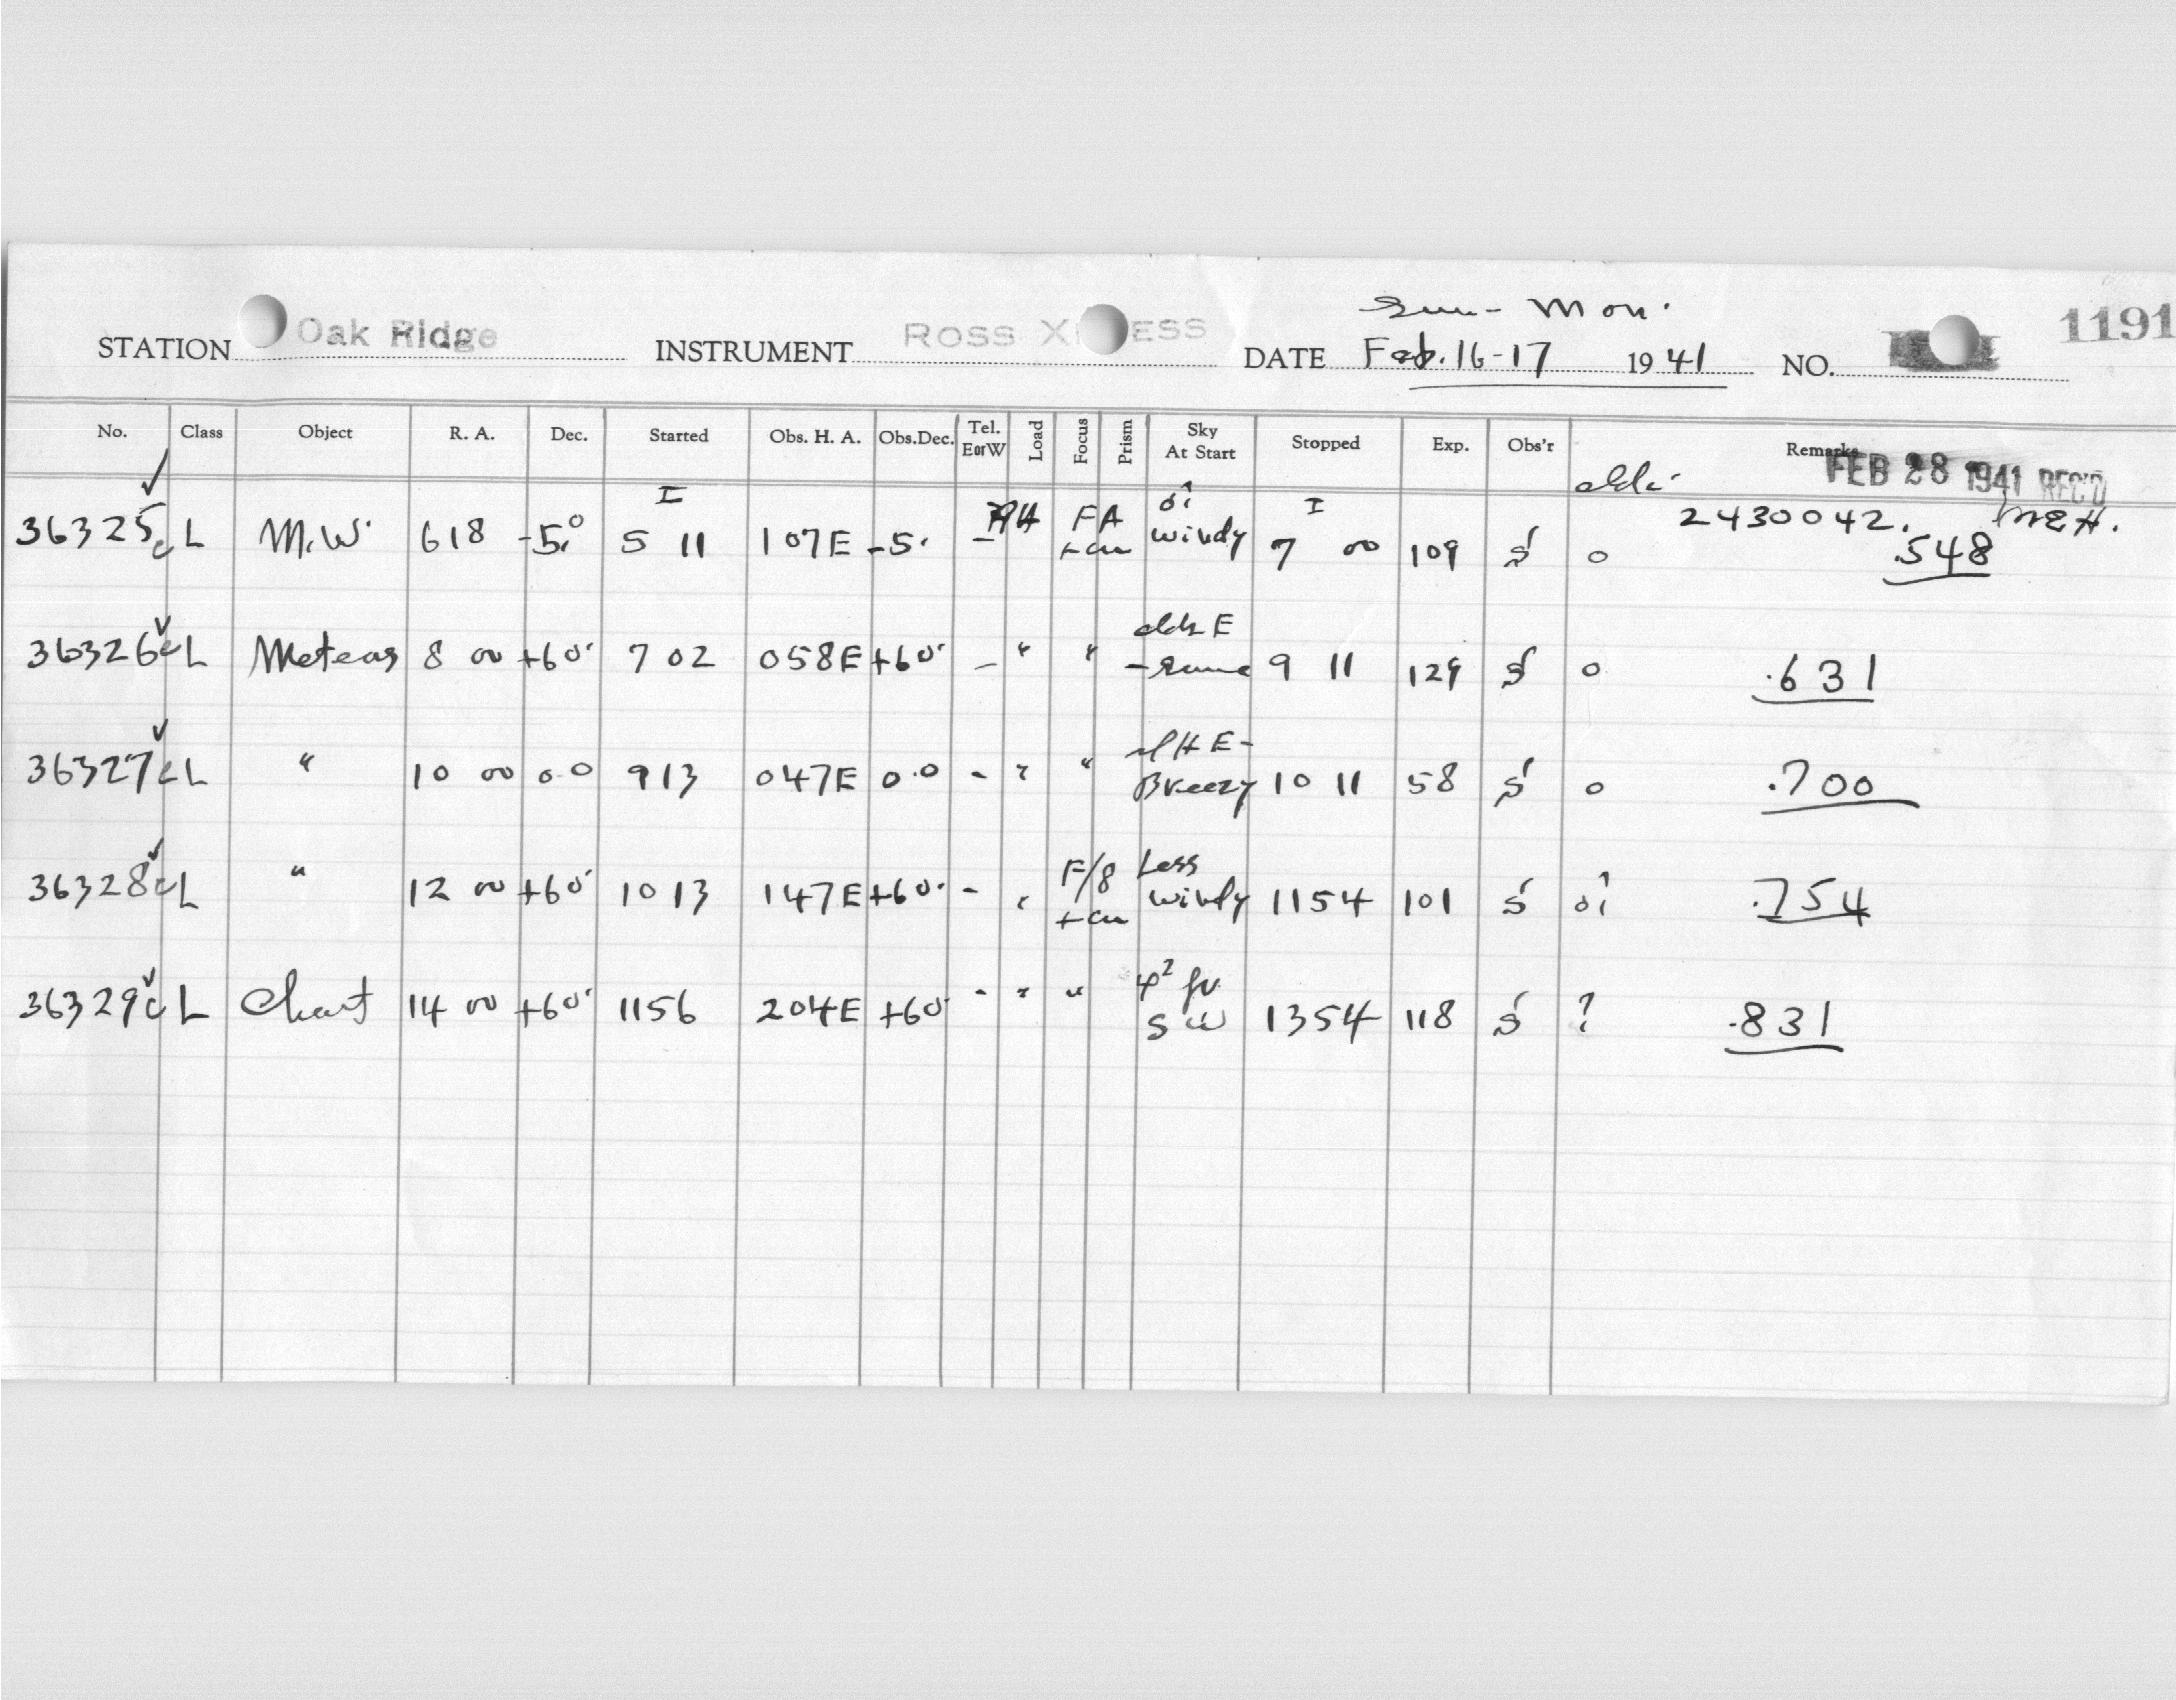 Sun - Mon.
1191
STATION Oak Ridge INSTRUMENT ROSS X ESS DATE Feb. 16-17 1941 NO.
No. Class Object R. A. Dec. Started Obs. H. A. Obs.Dec. Tel. EorW Load Focus Prism Sky At Start Stopped Exp. Obs'r Remarks
FEB 28 1941 REC'D
2430042. MEH.
36325c L M.W. 6 18 -5.° I 5 11 1 07E -5. - AH FA windy I 7 00 109 S o .548
36326c L Meteors 8 00 +60. 7 02 0 58E +60. - " " cldr E - same 9 11 129 S o .631
36327c L " 10 00 0.0 9 13 0 47E 0.0 - " " E - Breezy 10 11 58 S o .700
36328c L " 12 00 +60. 10 13 1 47E +60. - " F/8 Less windy 11 54 101 S .754
36329c L Chart 14 00 +60. 11 56 2 04E +60. - " " SW 13 54 118 S ? .831